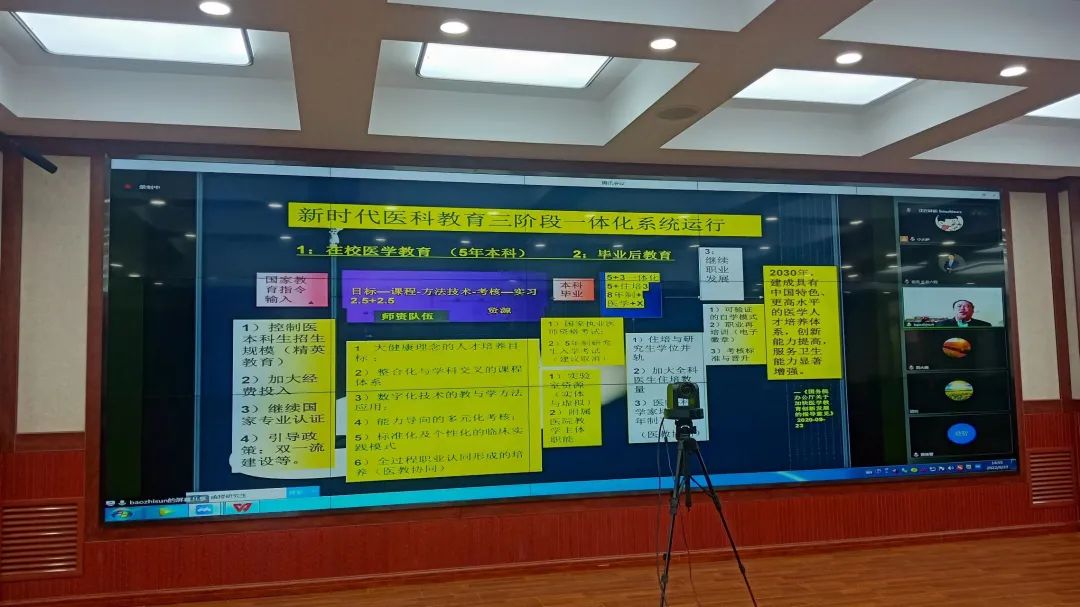 录制中
腾讯会议
新时代医科教育三阶段一体化系统运行
1：在校医学教育 （5年本科）
2：毕业后教育
3：
继续
职业
发展
国家教
育指令
输入
目标—课程-方法技术-考核—实习
2.5+2.5
师资队伍
资源
本科
毕业
5+3一体化
5+住培3
8年制+
医学+X
2030年，
建成具有
中国特色、
更高水平
的医学人
才培养体
系，创新
能力提高，
服务卫生
能力显著
增强。
1）控制医
本科生招生
规模（精英
教育）
2）加大经
费投入
3）继续国
家专业认证
4）引导政
策：双一流
建设等。
1 大健康理念的人才培养目
标；
2）整合化与学科交叉的课程
体系
3）数字化技术的教与学方法
应用；
4）能力导向的多元化考核；
5）标准化及个性化的临床实
践模式
6）全过程职业认同形成的培
养（医教协同）
1）国家执业医
师资格考试；
2）5年制研究
生入学考试
（建议取消）
1）实验
室资源
（实体
与虚拟）
2）附属
医院教
学主体
职能
1）住培与研
究生学位并
轨
2）加大全科
医生住培数
量
3）医
学家
年制
（医教协
1）可验证
的自学模式
2）职业再
培训（电子
徽章）
3）考核标
准与晋升
—《国务院
办公厅关于
加快医学教
育创新发展
的指导意见》
2020-09-
23
baozhisun的屏幕共享